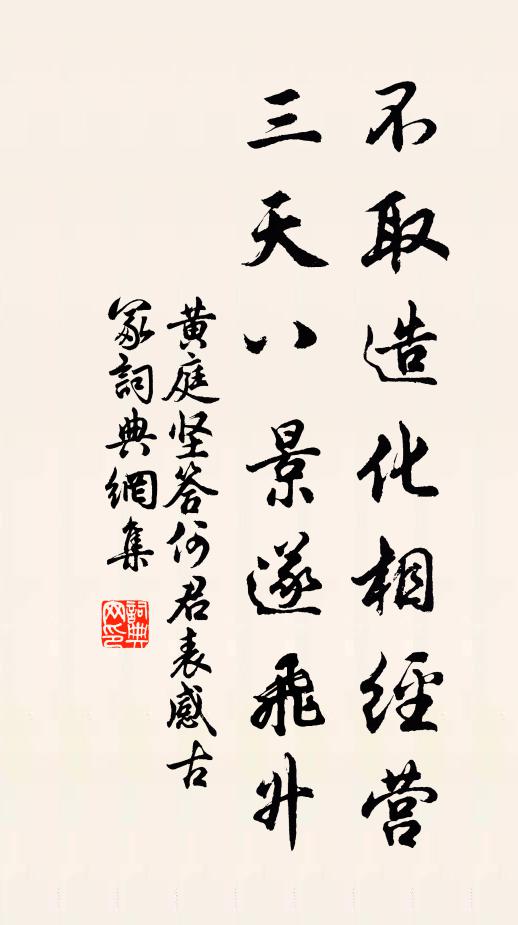 不取造化相经营
三天八景遂飛升
黄庭坚答何君表感古
冢詞典網集
詞典网印